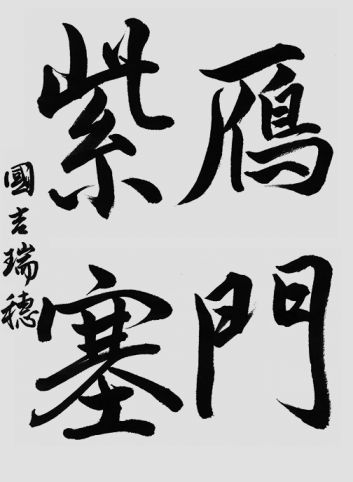 雁門
紫塞
國吉瑞穂